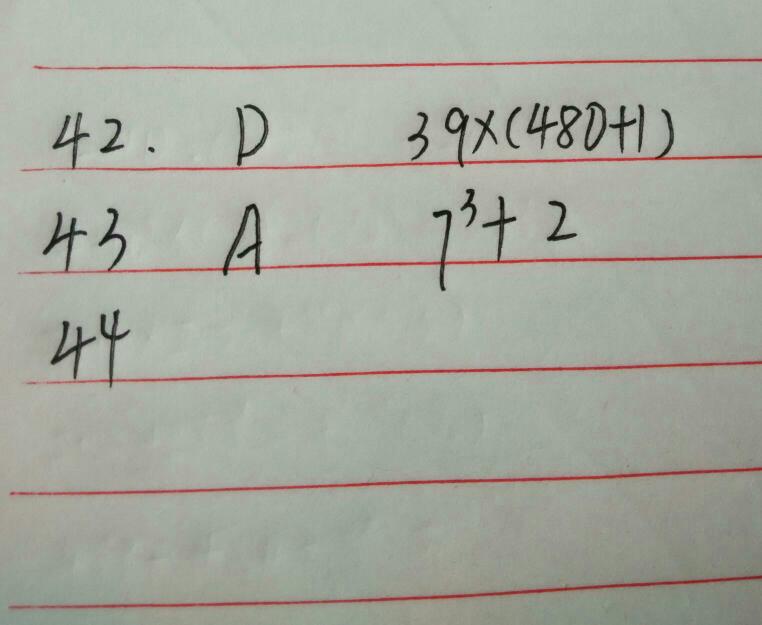 42. D 39×(480+1)
43 A 7³+2
44